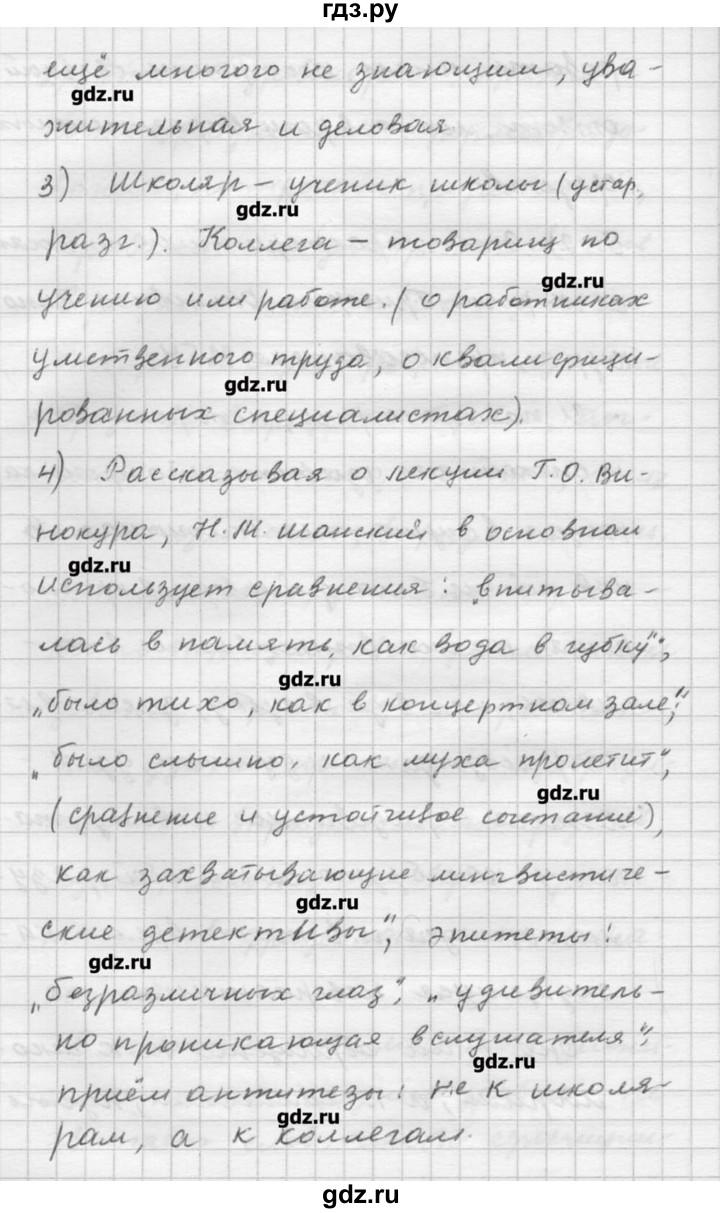 гдз.ру
ещё многого не знающим, ува-
gdz.ru
жительная и деловая
3) Школяр – ученик школы (устар,
gdz.ru
разг.). Коллега – товарищ по
gdz.ru
учению или работе. (о работниках
умственного труда, о квалифици-
gdz.ru
рованных специалистах).
4) Рассказывая о лекции Г.О. Ви-
нокура, Н.М. Шанский в основном
gdz.ru
использует сравнения: впитыва-
лась в память, как вода в губку";
gdz.ru
„было тихо, как в концертном зале";
„было слышно, как муха пролетит",
gdz.ru
(сравнение и устойчивое сочетание),
как захватывающие лингвистиче-
gdz.ru
ские детективы"; эпитеты:
gdz.ru
„безразличных глаз"; „удивитель-
но проникающая в слушателя";
gdz.ru
приём антитезы: не к школя-
gdz.ru
рам, а к коллегам.
gdz.ru